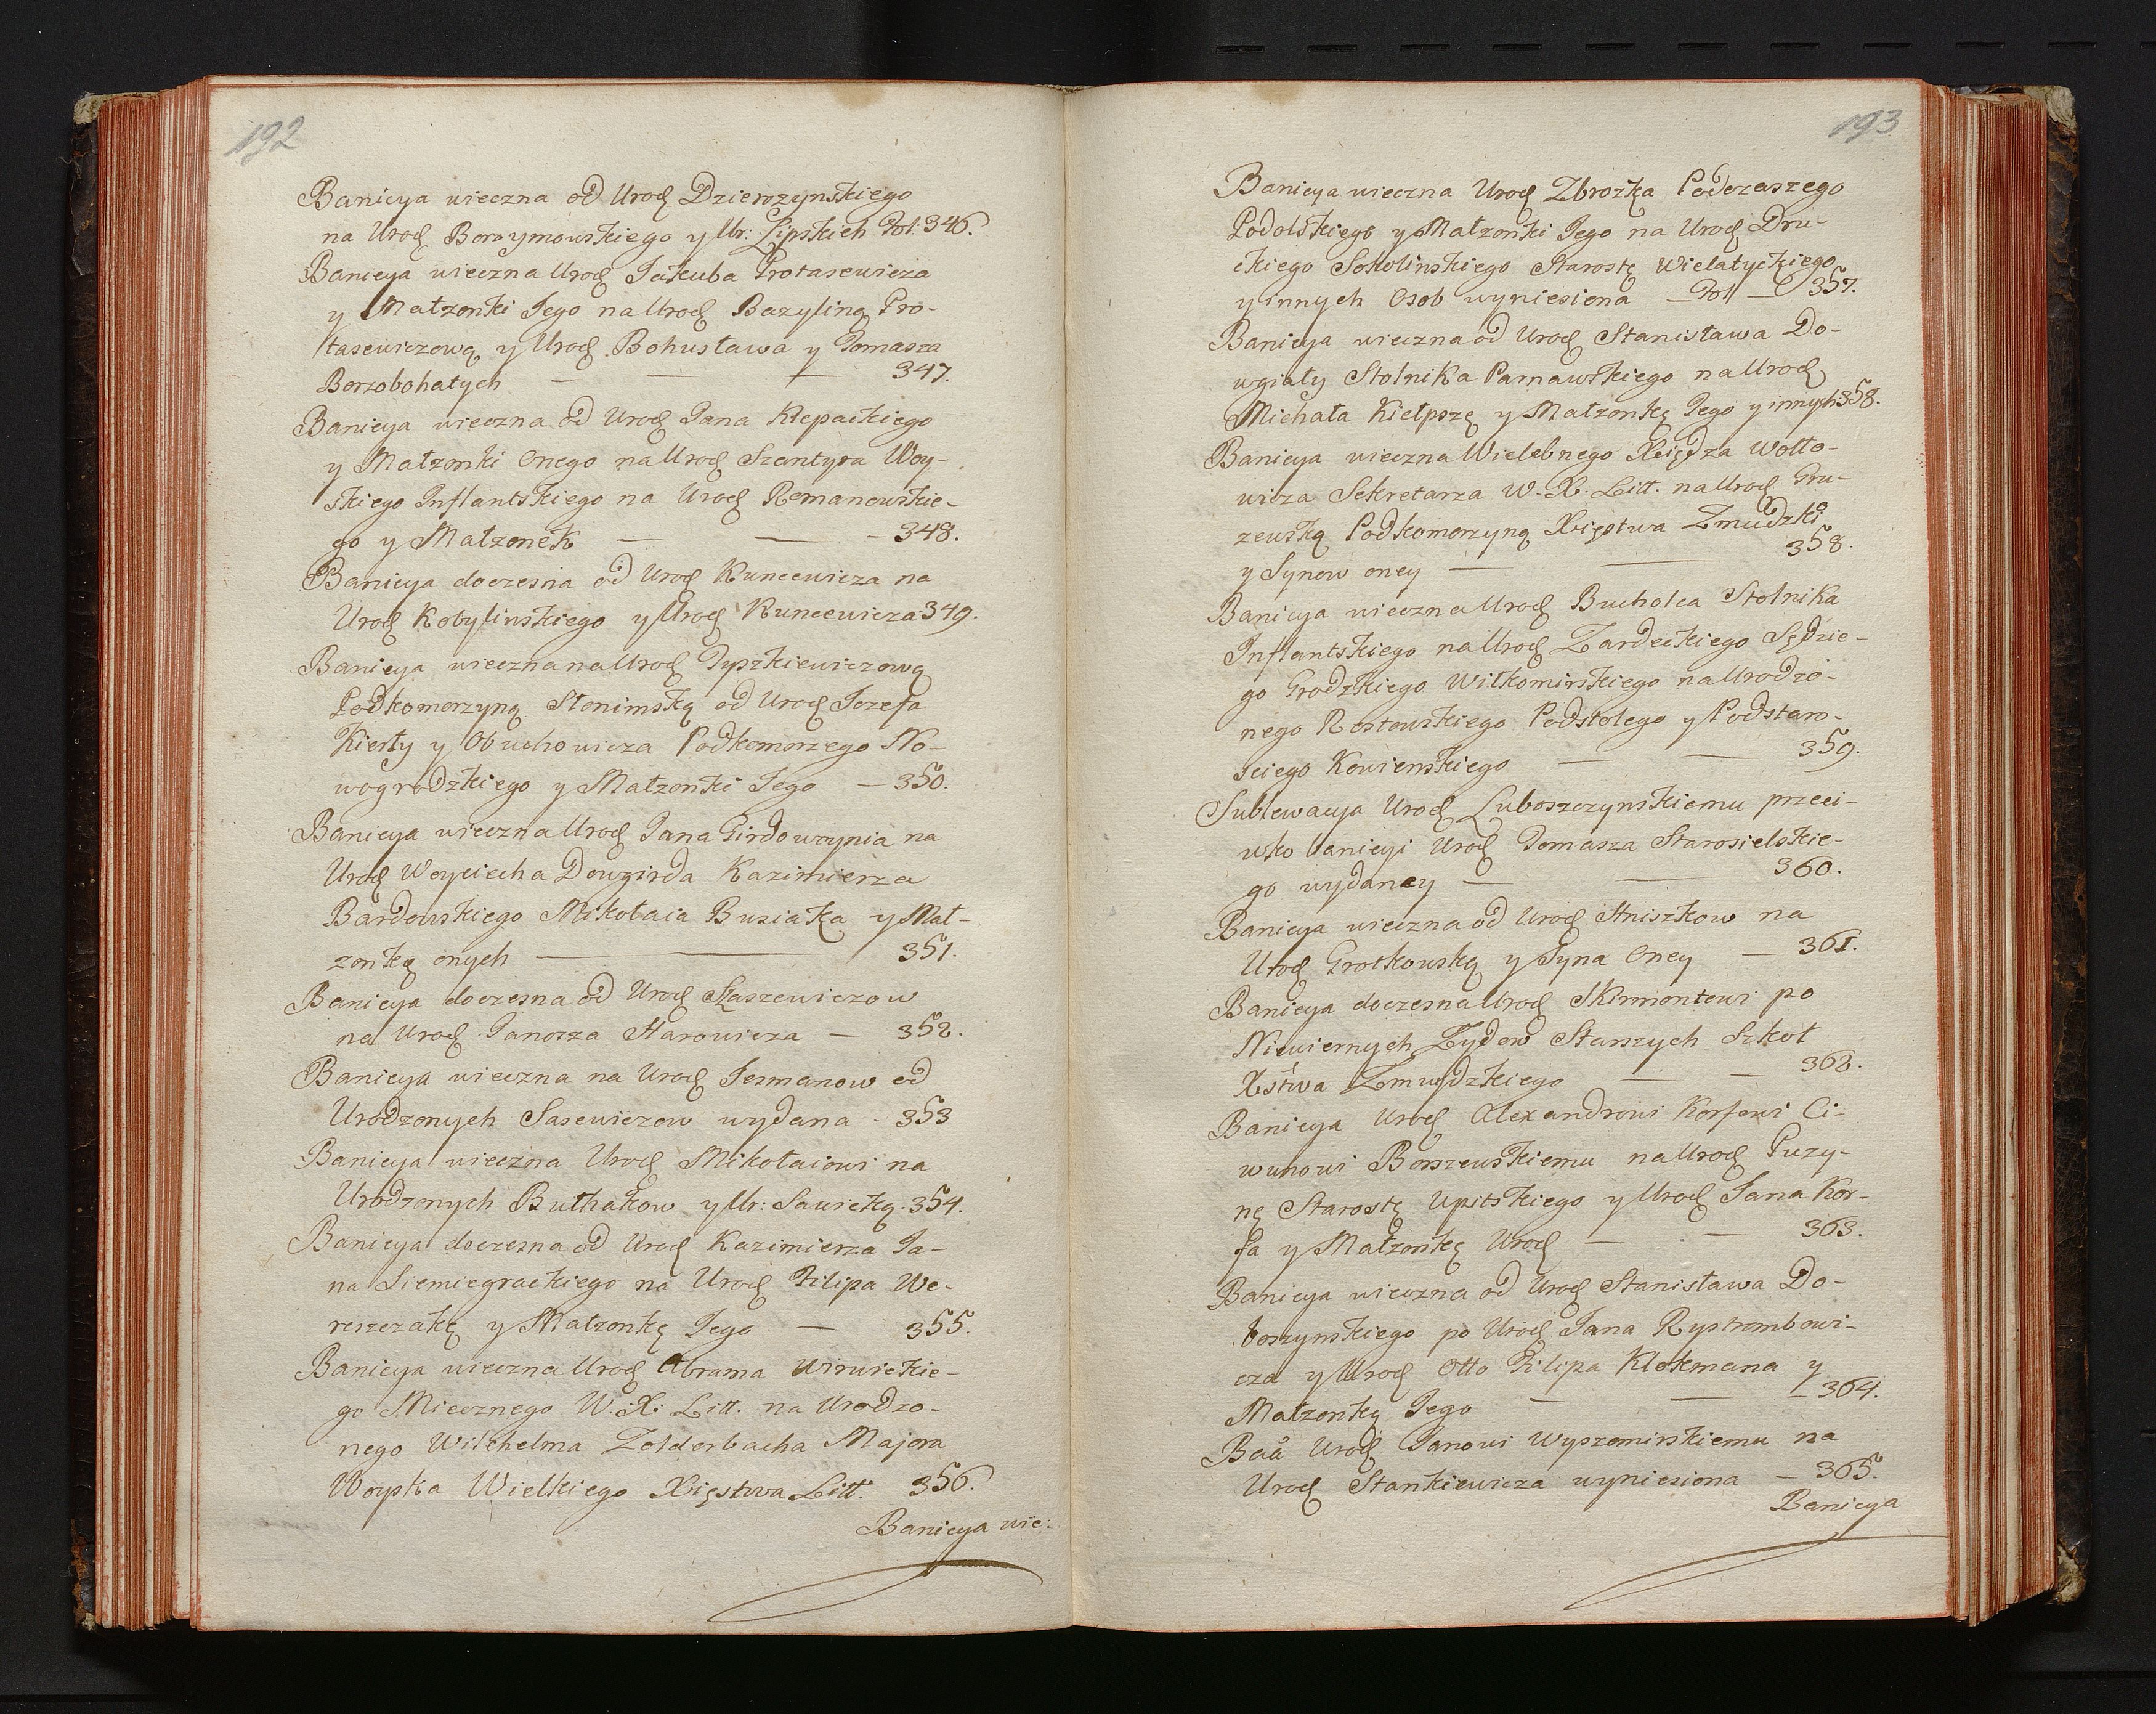 192
Banicya wieczna od Urodz Dzierozynskiego
na Urodz Borzymowskiego y Ur: Lipskich Fol: 346.
Banicya wieczna Urodz Jakuba Protasewicza
y Małzonki Jego na Urodz Bazyliną Pro-
tasewiczową y Urodz Bohusława y Tomasza
Borzobohatych — — — 347.
Banicya wieczna od Urodz Jana Kłepackiego
y Małzonki Onego na Urodz Szantyra Woy-
skiego Inflantskiego na Urodz Romanowskie-
go y Małzonek — — - 348.
Banicya doczesna od Urodz Kuncewicza na
Urodz Kobylinskiego y Urodz Kuncewicza 349.
Banicya wieczna na Urodz Tyszkiewiczową
Podkomorzyną Słonimską od Urodz Jozefa
Kierły y Obuchowicza Podkomorzego No-
wogrodzkiego y Małzonki Jego — 350.
Banicya wieczna Urodz Jana Girdowoynia na
Urodz Woyciecha Dowgirda Kazimierza
Bardowskiego Mikołaia Busiaka y Mał-
zonką onych — — 351.
Banicya doczesna od Urodz Staszewiczow
na Urodz Janosza Narowicza — 352.
Banicya wieczna na Urodz Jesmanow od
Urodzonych Sasewiczow wydana - 353
Banicya wieczna Urodz Mikołaiowi na
Urodzonych Bułhakow y Ur: Sawicką. 354.
Banicya doczesna od Urodz Kazimierza Ja-
na Siemiegrackiego na Urodz Filipa We-
reszczakę y Małzonkę Jego — 355.
Banicya wieczna Urodz Abrama Wirwickie-
go Miecznego W. X. Litt. na Urodzo-
nego Wilchelma Zelderbacha Majora
Woyska Wielkiego Xięstwa Litt. 356.
Banicya wie:
193
Banicya wieczna Urodz Zbrozka Podczaszego
Podolskiego y Małzonki Jego na Urodz Dru-
ckiego Sokolinskiego Starostę Wielatyckiego
y innych Osob wyniesiona — Fol — 357.
Banicya wieczna od Urodz Stanisława Do-
wgiały Stolnika Parnawskiego na Urodz
Michała Kiełpszę y Małzonkę Jego y innych 358.
Banicya wieczna Wielebnego Xiędza Wołło-
wicza Sekretarza W. X. Litt. na Urodz Gru-
zewską Podkomorzyną Xięstwa Zmudzkio
y Synow oney — — 358.
Banicya wieczna Urodz Bucholca Stolnika
Inflantskiego na Urodz Zardeckiego Sędzie-
go Grodzkiego Wiłkomirskiego na Urodzo-
nego Rostowskiego Podstolego y Podstaro-
sciego Kowienskiego — — 359.
Sublewacya Urodz Luboszczynskiemu przeci-
wko banicyi Urodz Tomasza Starosielskie-
go wydaney — — 360.
Banicya wieczna od Urodz Hniszkow na
Urodz Grotkowską y Syna Oney — 361.
Banicya doczesna Urodz Skirmontowi po
Niewiernych Zydow Starszych Szkoł
Xstwa Zmuydzkiego — — 362.
Banicya Urodz Alexandrowi Korfowi Ci-
wunowi Borszewskiemu na Urodz Puzy-
nę Starostę Upitskiego y Urodz Jana Kor-
fa y Małzonkę Urodz — — 363.
Banicya wieczna od Urodz Stanisława Do-
borzynskiego po Urodz Jana Rystrombowi-
cza y Urodz Otto Filipa Klokmana y
Małzonkę Jego — — 364.
Baa Urodz Janowi Wyszomirskiemu na
Urodz Stankiewicza wyniesiona — 365.
Banicya